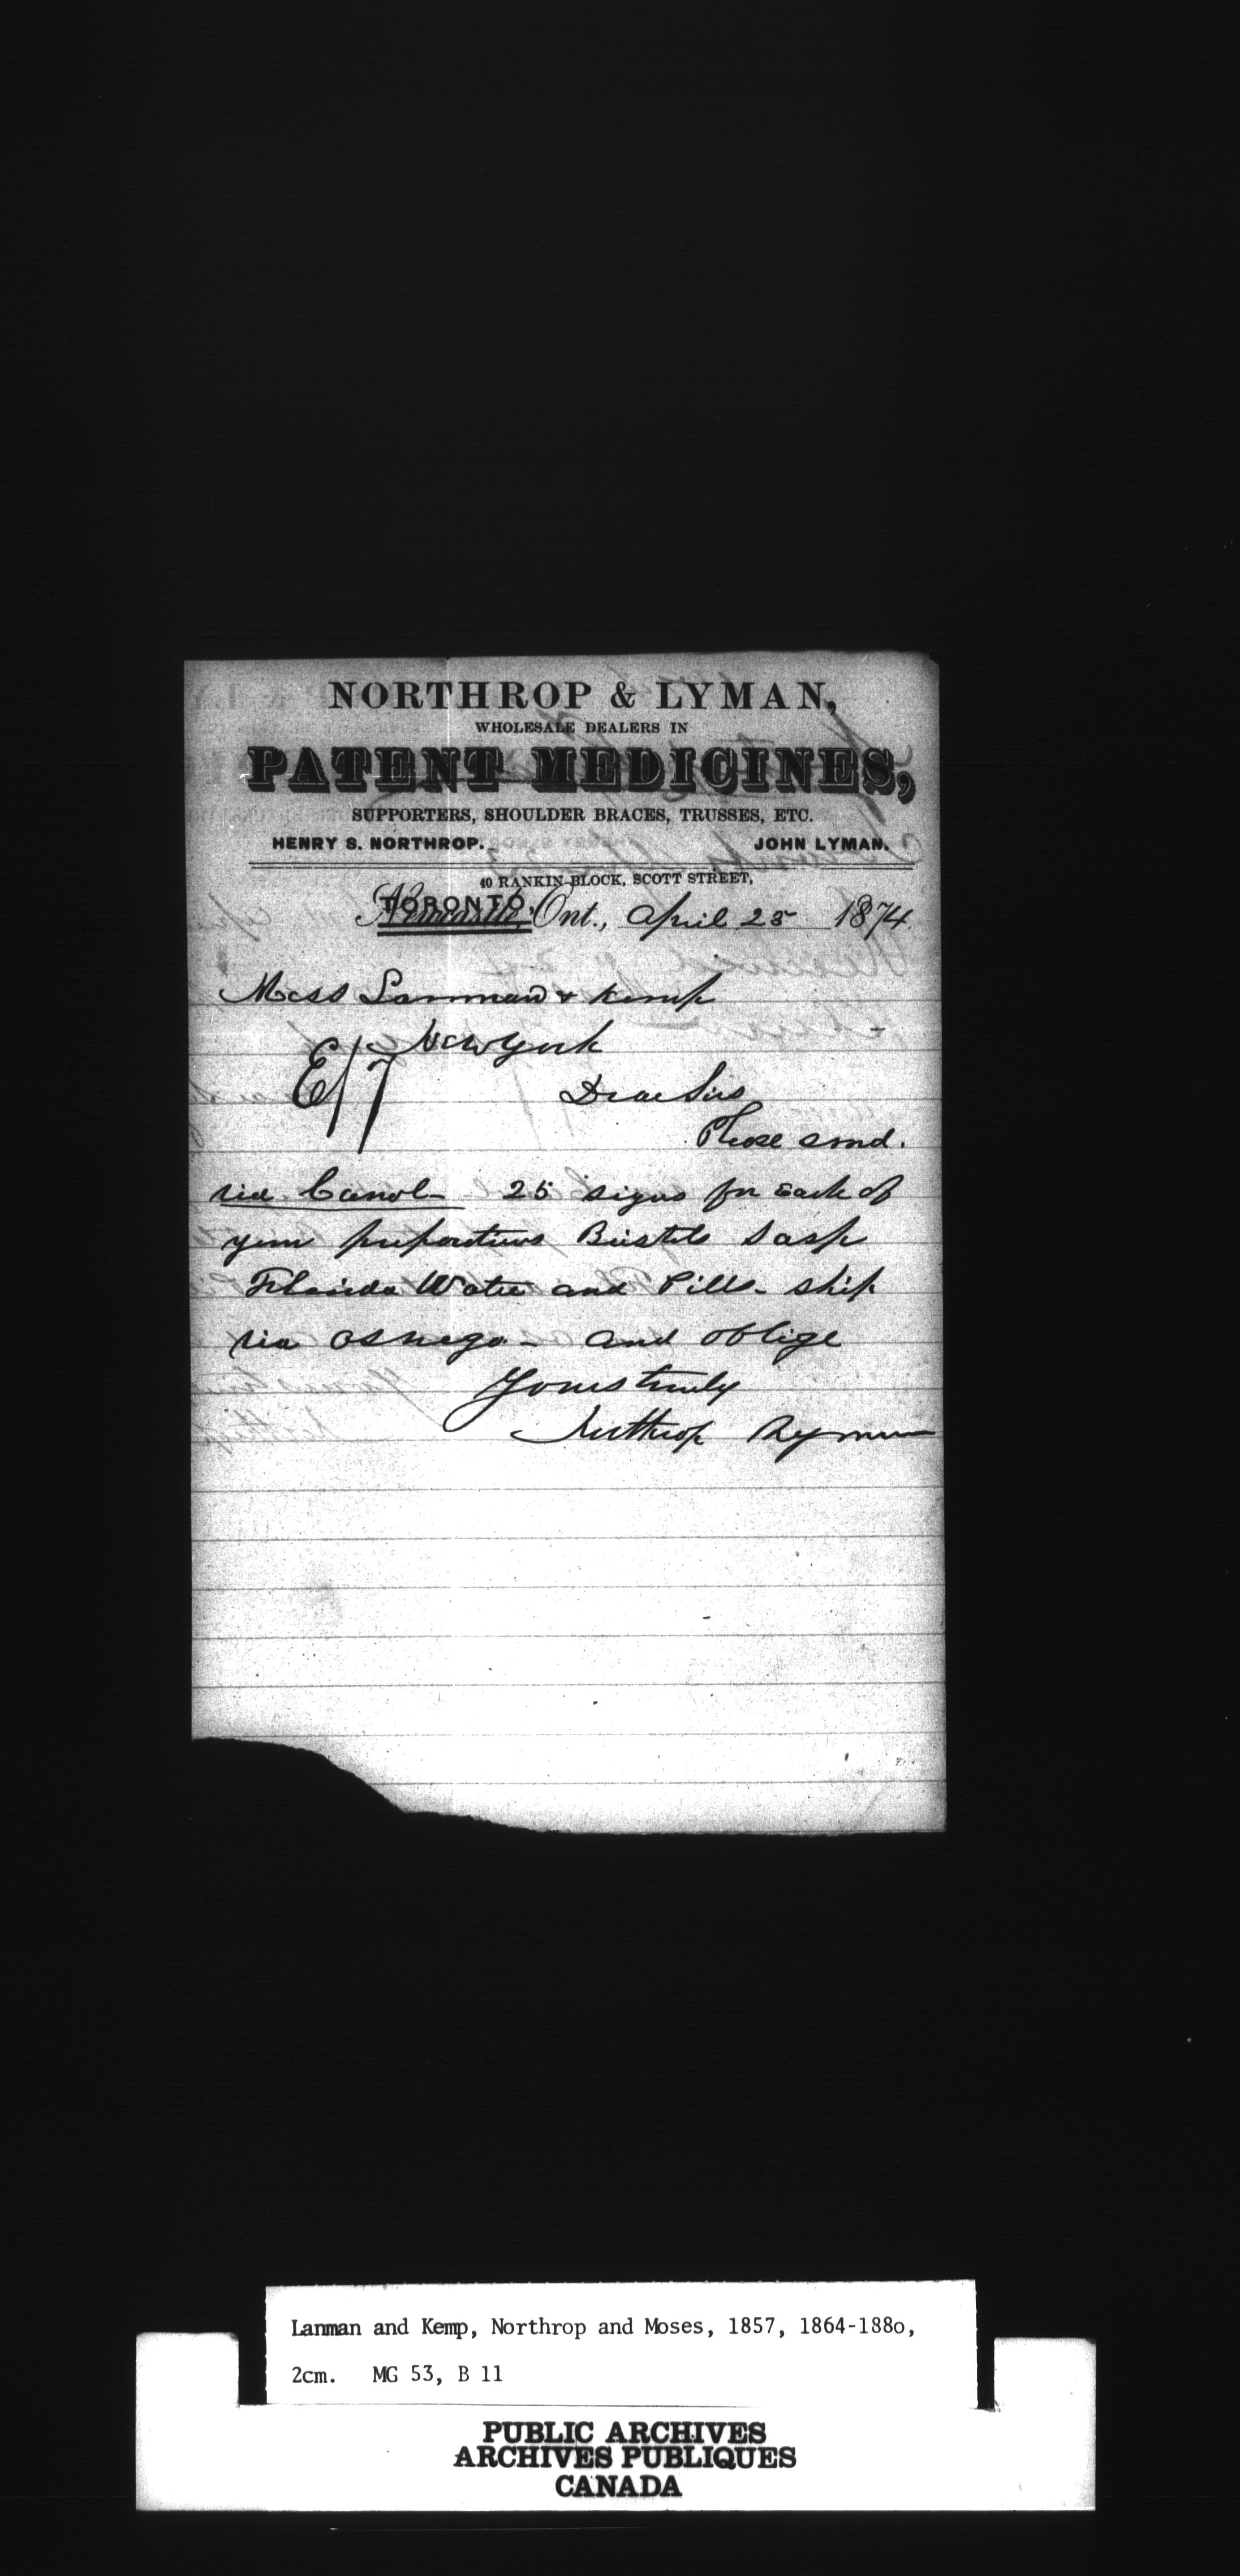 NORTHROP & LYMAN,
WHOLESALE DEALERS IN
PATENT MEDICINES,
SUPPORTERS, SHOULDER BRACES, TRUSSES, ETC.
HENRY S. NORTHROP. JOHN LYMAN.
40 RANKIN BLOCK, SCOTT STREET,
TORONTO, Newcastle, Ont., April 25 1874
Mess Lanman & Kemp
New York
E/7
Dear Sirs
Please send.
via Canal - 25 signs for Each of
your preparations Bristols Sasp
Florida Water and Pills - ship
via Oswego - and oblige
Yours truly
Northrop Lyman
Lanman and Kemp, Northrop and Moses, 1857, 1864-188o,
2cm. MG 53, B 11
PUBLIC ARCHIVES
ARCHIVES PUBLIQUES
CANADA